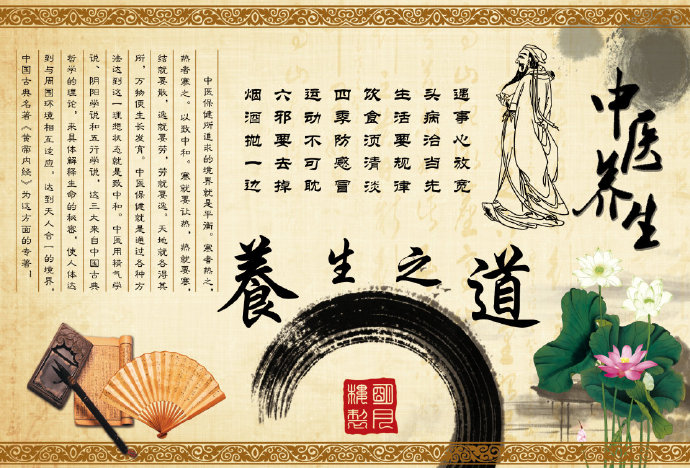 中医养生
遇事心放宽
头病治当先
生活要规律
饮食须清淡
四季防感冒
运动不可耽
六邪要去掉
烟酒抛一边
養生之道
中医保健所追求的境界就是平衡。寒者热之，
热者寒之。以致中和。寒就要让热，热就要寒，
结就要散，逸就要劳，劳就要逸。天地就各得其
所，万物便生长发育。中医保健就是通过各种方
法达到这一理想状态就是致中和。中医用精气学
说、阴阳学说和五行学说，这三大来自中国古典
哲学的理论，来具体解释生命的秘密，使人体达
到与周围环境相互适应，达到天人合一的境界，
中国古典名著《黄帝内经》为这方面的专著！
明月
樓製